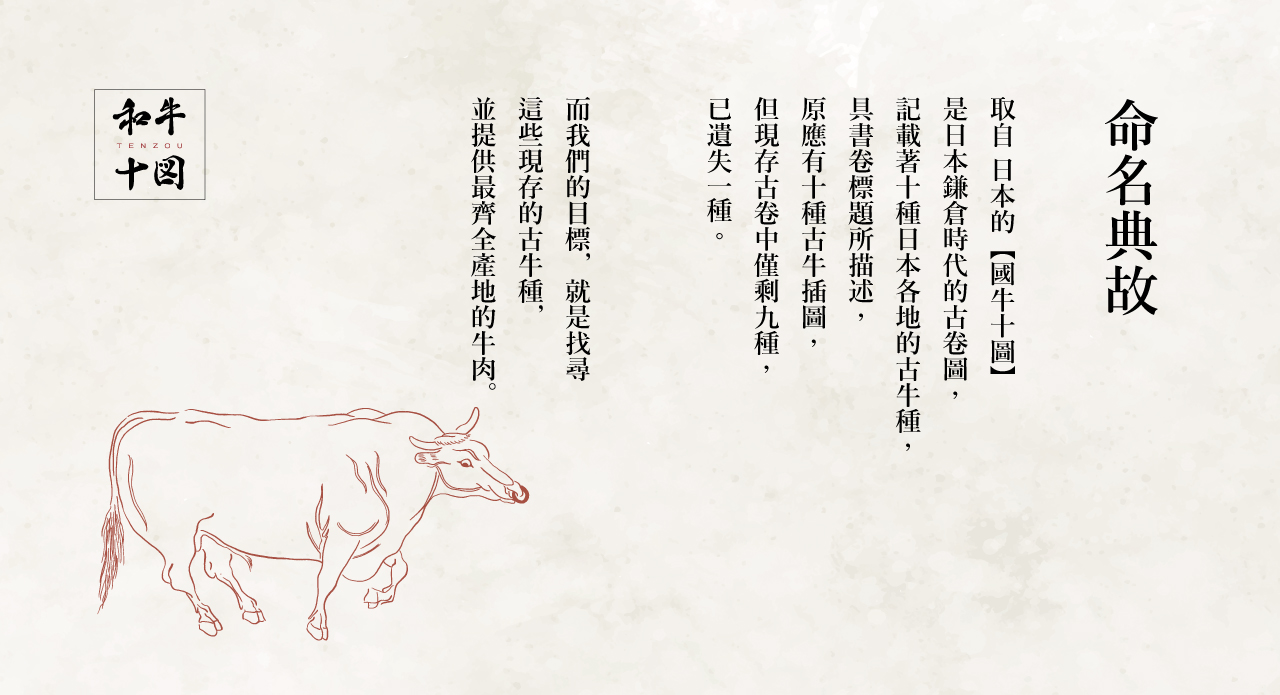 命名典故
取自 日本的【國牛十圖】
是日本鎌倉時代的古卷圖，
記載著十種日本各地的古牛種，
具書卷標題所描述，
原應有十種古牛插圖，
但現存古卷中僅剩九種，
已遺失一種。
而我們的目標，就是找尋
這些現存的古牛種，
並提供最齊全產地的牛肉。
和牛
TENZOU
十図